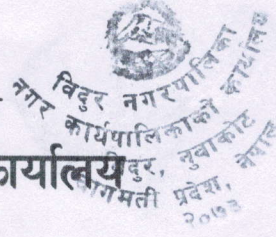 विदुर नगरपालिका
नगर कार्यपालिकाको कार्यालय
विदुर, नुवाकोट
बागमती प्रदेश, नेपाल
२०७३
ार्यालय